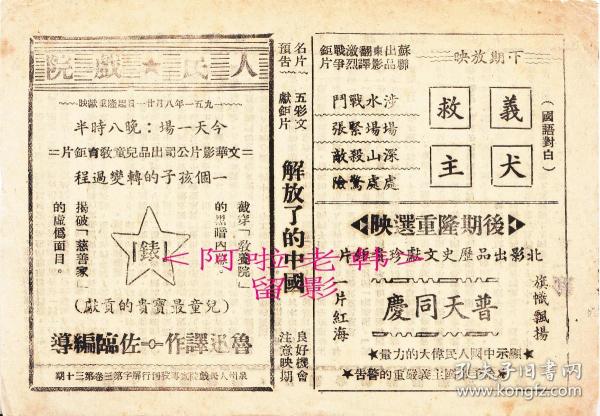 人民★戲院
一九五一年八月廿一日起隆重献映
今天一場：晚八時半
文華影片公司出品兒童教育鉅片
一個孩子的轉變過程
截穿「教養院」
的黑暗内幕。
錶
揭破「慈善家」
的虛僞面目。
(兒童最寶貴的貢獻)
魯迅譯作 佐臨編導
泉州人民戲院
第三卷第三十期
名片預告
五彩文献鉅片
解放了的中國
良好機會
注意映期
下期放映
蘇聯出品
東影翻譯
激烈戰爭鉅片
(國語對白)
義犬救主
涉水戰鬥
場場緊張
深山殺敵
處處驚險
後期隆重選映
北影出品歷史文獻珍貴鉅片
旗幟飄揚
普天同慶
一片紅海
★顯示中國人民偉大的力量★
主義嚴重的警告★
<阿啦老韩>
留影
孔夫子旧书网